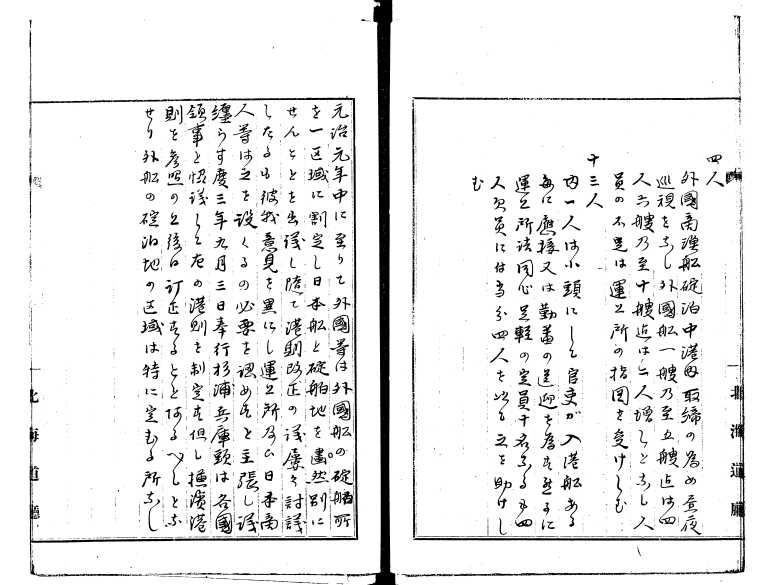 四人
外國商漁船碇泊中港内取締の為め昼夜
巡視をなし外國船一艘乃至五艘迄は四
人六艘乃至十艘迄は六人増しとなし人
員の不足は運上所の指図を受けしむ
十三人
内一人は小頭にして官吏が入港船ある
毎に應接又は勤番の送迎を為す
運上所詰同心足軽の定員十名なるも四
人欠員に付当分四人を以て之を助けし
む
北海道廳
元治元年中に至りて外國等は外國船の碇舶所
を一区域に割定し日本船と碇舶地を畫然別に
せんことを出議し随て港則改正の議屡々討議
したるも彼我意見を異にし運上所及ひ日本商
人等は之を設くるの必要を認めすと主張し議
纏らす慶三年九月三日奉行杉浦兵庫頭は各國
領事と協議して左の港則を制定す但し横濱港
則を参照の上後日訂正することあるへしとな
せり外船の碇泊地の区域は特に定むる所なし
北海道廳